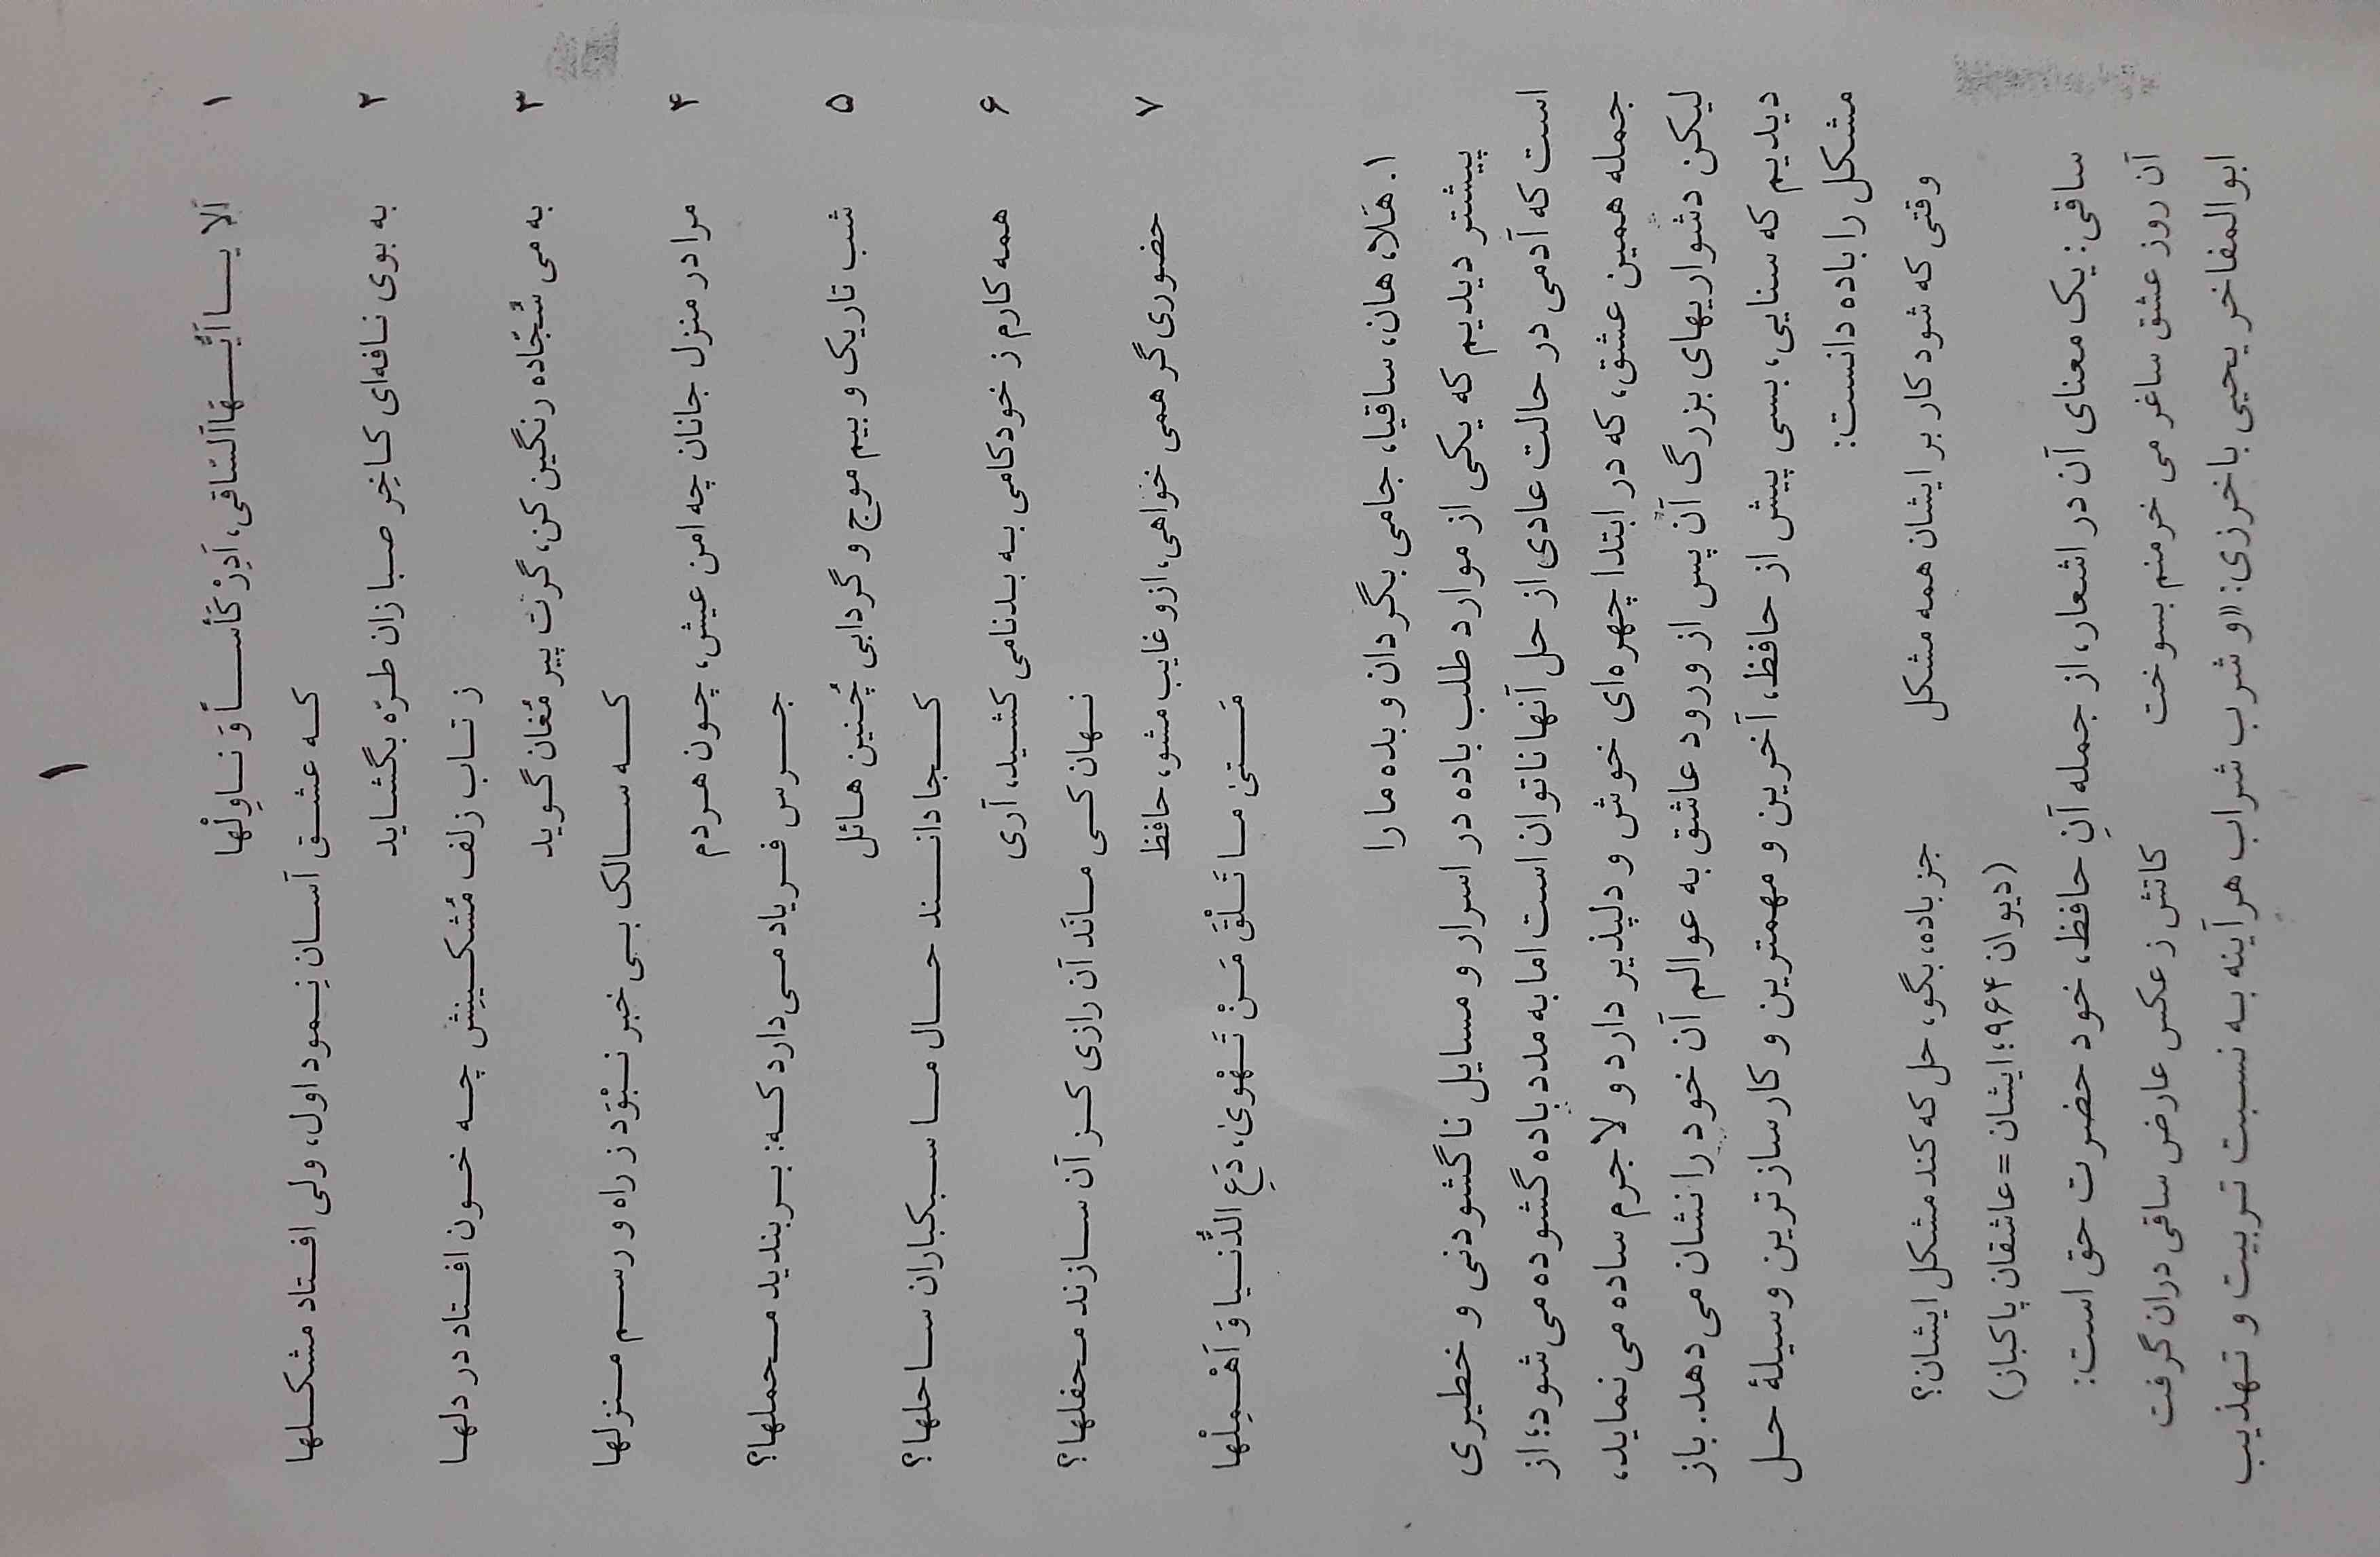 ۱
۱ اَلا یـــا اَیُّـــهَا اَلسّاقی، اَدِرْ کَأســـاً وَ نـــاوِلْها
کـــه عشـــق آســـان نِـــمود اول، ولی افـــتاد مشکـــلها
۲ به بوی نـــافه‌ای کـــاخِر صـــبا زان طـرّه بگشـــاید
ز تـــاب زلف مُشکـــینِش چـــه خـــون افـــتاد در دلهـــا
۳ به می سُجّاده رنگین کن، گرت پیر مُغان گـــوید
کـــه ســـالک بـــی خبر نـــبْوَد ز راه و رســـم مـــنزلها
۴ مرا در منزل جانان چه امن عیش، چـــون هـــردم
جـــرس فـــریاد مـــی‌دارد کـــه: بـــربندید مـــحملها؟
۵ شب تاریک و بیم موج و گردابی چُنین هـــائل
کـــجا دانـــند حـــال مـــا سبکباران ســـاحلها؟
۶ همه کارم ز خودکامی بـه بـدنامی کشـید، آری
نـــهان کـــی مـــانَد آن رازی کـــز آن ســـازند مـــحفلها؟
۷ حضوری گر همی خواهی، ازو غایب مشو، حافظ
مَـــتیٰ مـــا تَـــلْقَ مَـــنْ تَـــهْویٰ، دَعِ الدُّنـــیا وَ اَهْـــمِلْها
۱. هَلا، هان، ساقیا، جامی بگردان و بده ما را
پیشتر دیدیم که یکی از موارد طلب باده در اسرار و مسایل ناگشودنی و خطیری
است که آدمی در حالت عادی از حل آنها ناتوان است اما به مدد باده گشوده می‌شود؛ از
جمله همین عشق، که در ابتدا چهره‌ای خوش و دلپذیر دارد و لاجرم ساده می‌نماید،
لیکن دشواریهای بزرگ آن پس از ورود عاشق به عوالم آن خود را نشان می‌دهد. باز
دیدیم که سنایی، بسی پیش از حافظ، آخرین و مهمترین و کارسازترین وسیلهٔ حـل
مشکل را باده دانست:
وقتی که شود کار بر ایشان همه مشکل جز باده، بگو، حل که کند مشکل ایشان؟
(دیوان ۹۶۴؛ ایشان = عاشقان پاکباز)
ساقی: یک معنای آن در اشعار، از جمله آنِ حافظ، خود حضرت حق است:
آن روز عشق ساغر می خرمنم بسوخت کاتش ز عکس عارض ساقی دران گرفت
ابوالمفاخر یحیی باخرزی: «و شرب شراب هر آینه بـه نسـبت تـربیت و تـهذیب